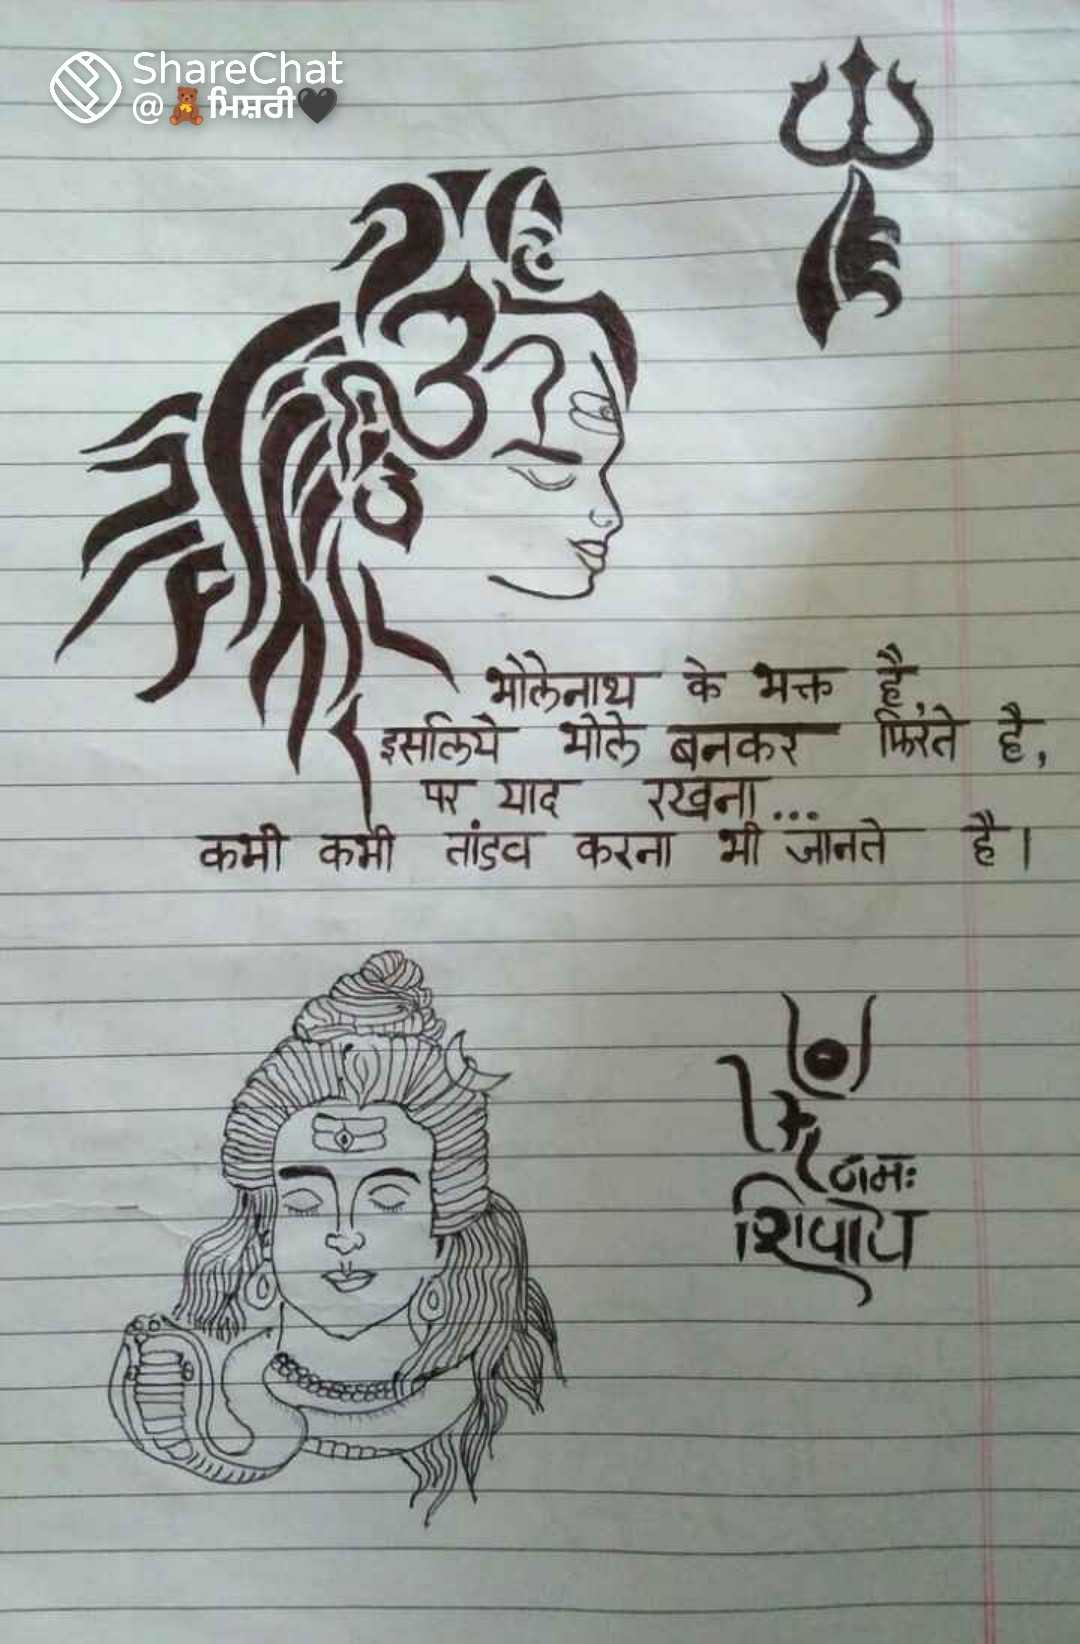 ShareChat
@🧸ਮਿਸ਼ਰੀ🖤
भोलेनाथ के भक्त है,
इसलिये भोले बनकर फिरते है,
पर याद रखना...
कभी कभी तांडव करना भी जानते है।
ॐ
नमः
शिवाय